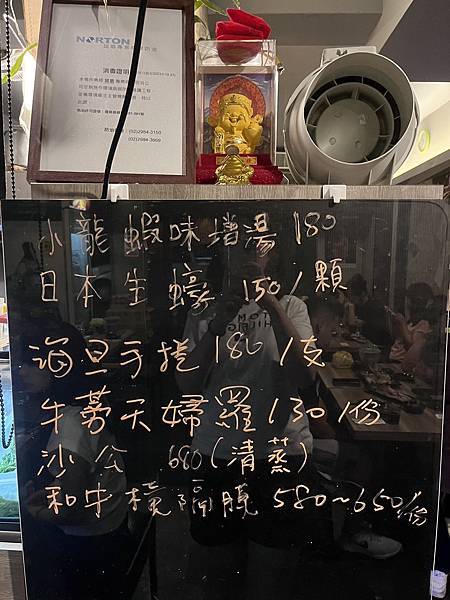 NORTON
消毒證明
(02)2984-3150
(02)2984-3909
小龍蝦味增湯 180
日本生蠔 150/顆
海旦手捲 180/支
牛蒡天婦羅 130/份
沙公 680(清蒸)
和牛橫隔膜 580~650/份